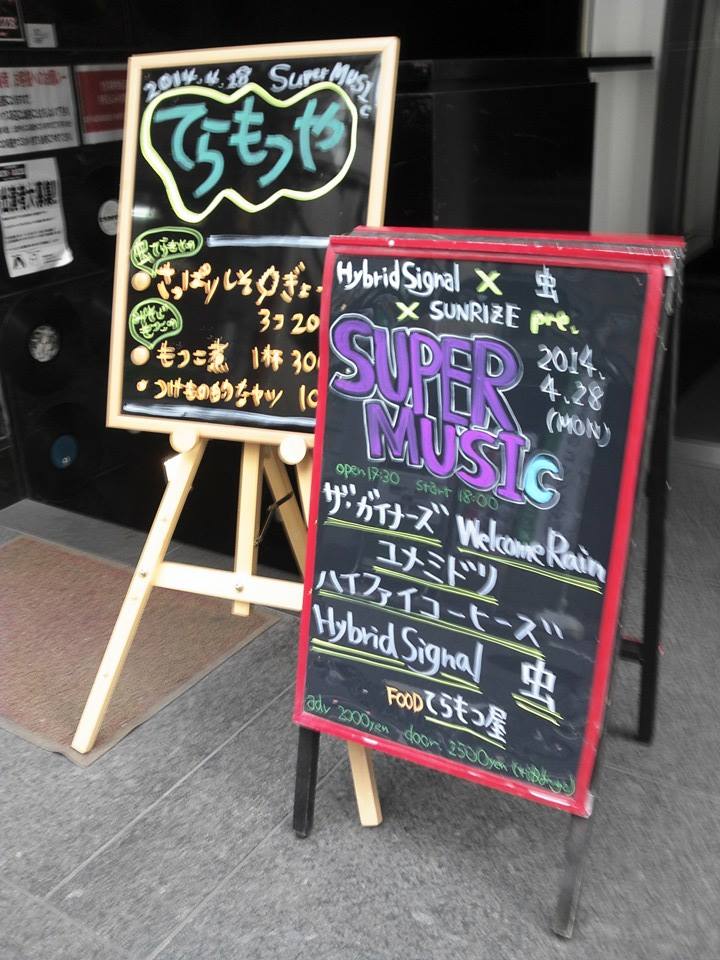 2014.4.28 Super MUSIC
てらもつや
さっぱりしそ
3コ 20
もつこ煮 1杯 300
つけもの的なヤツ 10
Hybrid Signal × 虫
× SUNRIZE pre.
SUPER MUSIC
2014.
4.28
(MON)
open 17:30 start 18:00
ザ・ガイナーズ Welcome Rain
ユメミドリ
ハイファイコーヒーズ
Hybrid Signal 虫
FOOD てらもつ屋
adv 2000yen door 2500yen